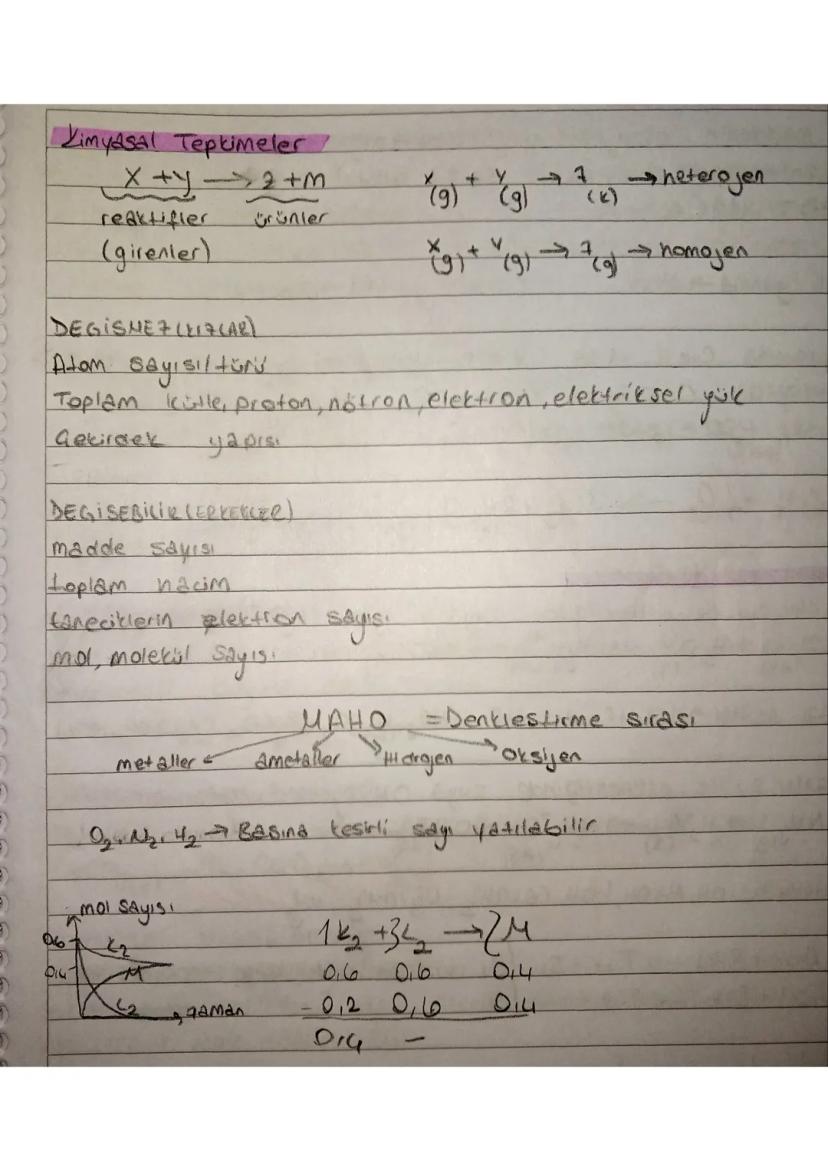 Kimyasal Tepkimeler
X + y → z + M
reaktifler ürünler
(girenler)
X(g) + Y(g) → Z(k) → heterojen
X(g) + Y(g) → Z(g) → homojen
DEGİSMEZ (KIZLAR)
Atom sayısı/türü
Toplam kütle, proton, nötron, elektron, elektriksel yük
Cekirdek yapısı
DEGİSEBİLİR (ERKEKLER)
madde sayısı
toplam hacim
taneciklerin elektron sayısı
mol, molekül sayısı
MAHO = Denklestirme sırası
metaller ametaller Hidrojen Oksijen
O2, N2, H2 → Basına kesirli sayı yazılabilir
mol sayısı
0,6 K2
0,4 M
L2 zaman
1K2 + 3L2 → 2M
0,6 0,6 0,4
- 0,2 0,6 0,4
0,4 -